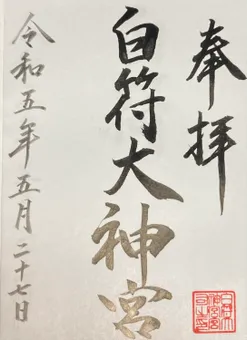 奉拝
白符大神宮
令和五年五月二十七日